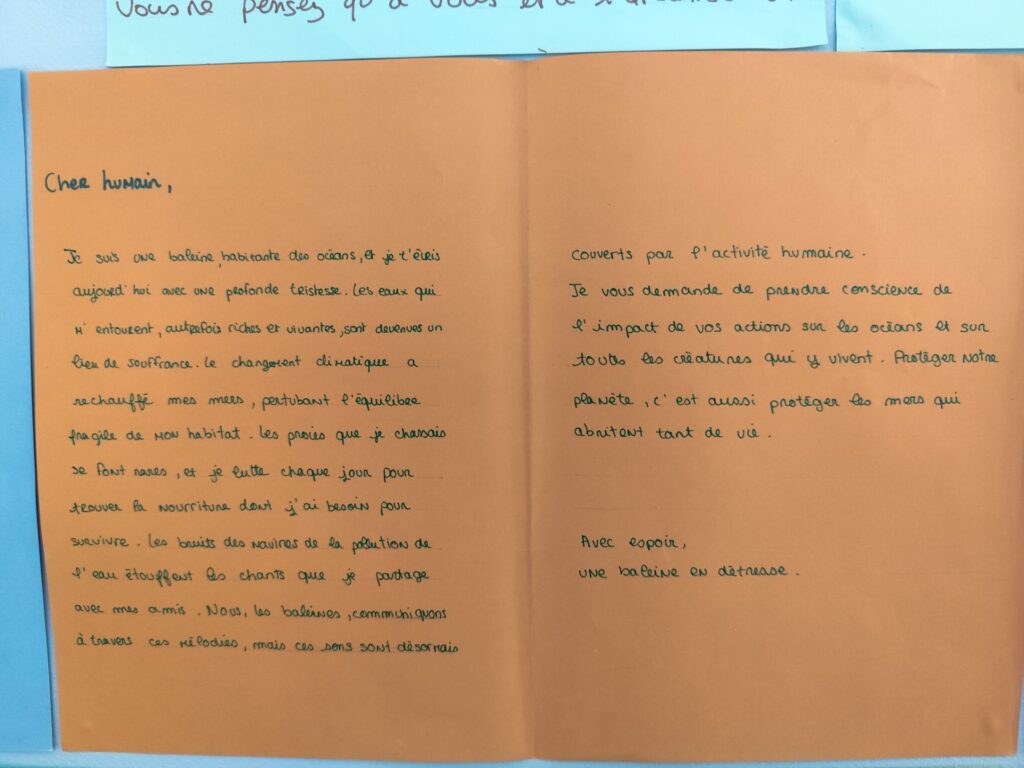 Vous ne pensez qu'à vous et à
Cher humain,
Je suis une baleine, habitante des océans, et je t'écris
aujourd'hui avec une profonde tristesse. Les eaux qui
m'entourent, autrefois riches et vivantes, sont devenues un
lieu de souffrance. Le changement climatique a
rechauffé mes mers, pertubant l'équilibre
fragile de mon habitat. Les proies que je chassais
se font rares, et je lutte chaque jour pour
trouver la nourriture dont j'ai besoin pour
survivre. Les bruits des navires de la pollution de
l'eau étouffent les chants que je partage
avec mes amis. Nous, les baleines, communiquons
à travers ces mélodies, mais ces sons sont désormais
couverts par l'activité humaine.
Je vous demande de prendre conscience de
l'impact de vos actions sur les océans et sur
toutes les créatures qui y vivent. Protéger notre
planète, c'est aussi protéger les mers qui
abritent tant de vie.
Avec espoir,
une baleine en détresse.